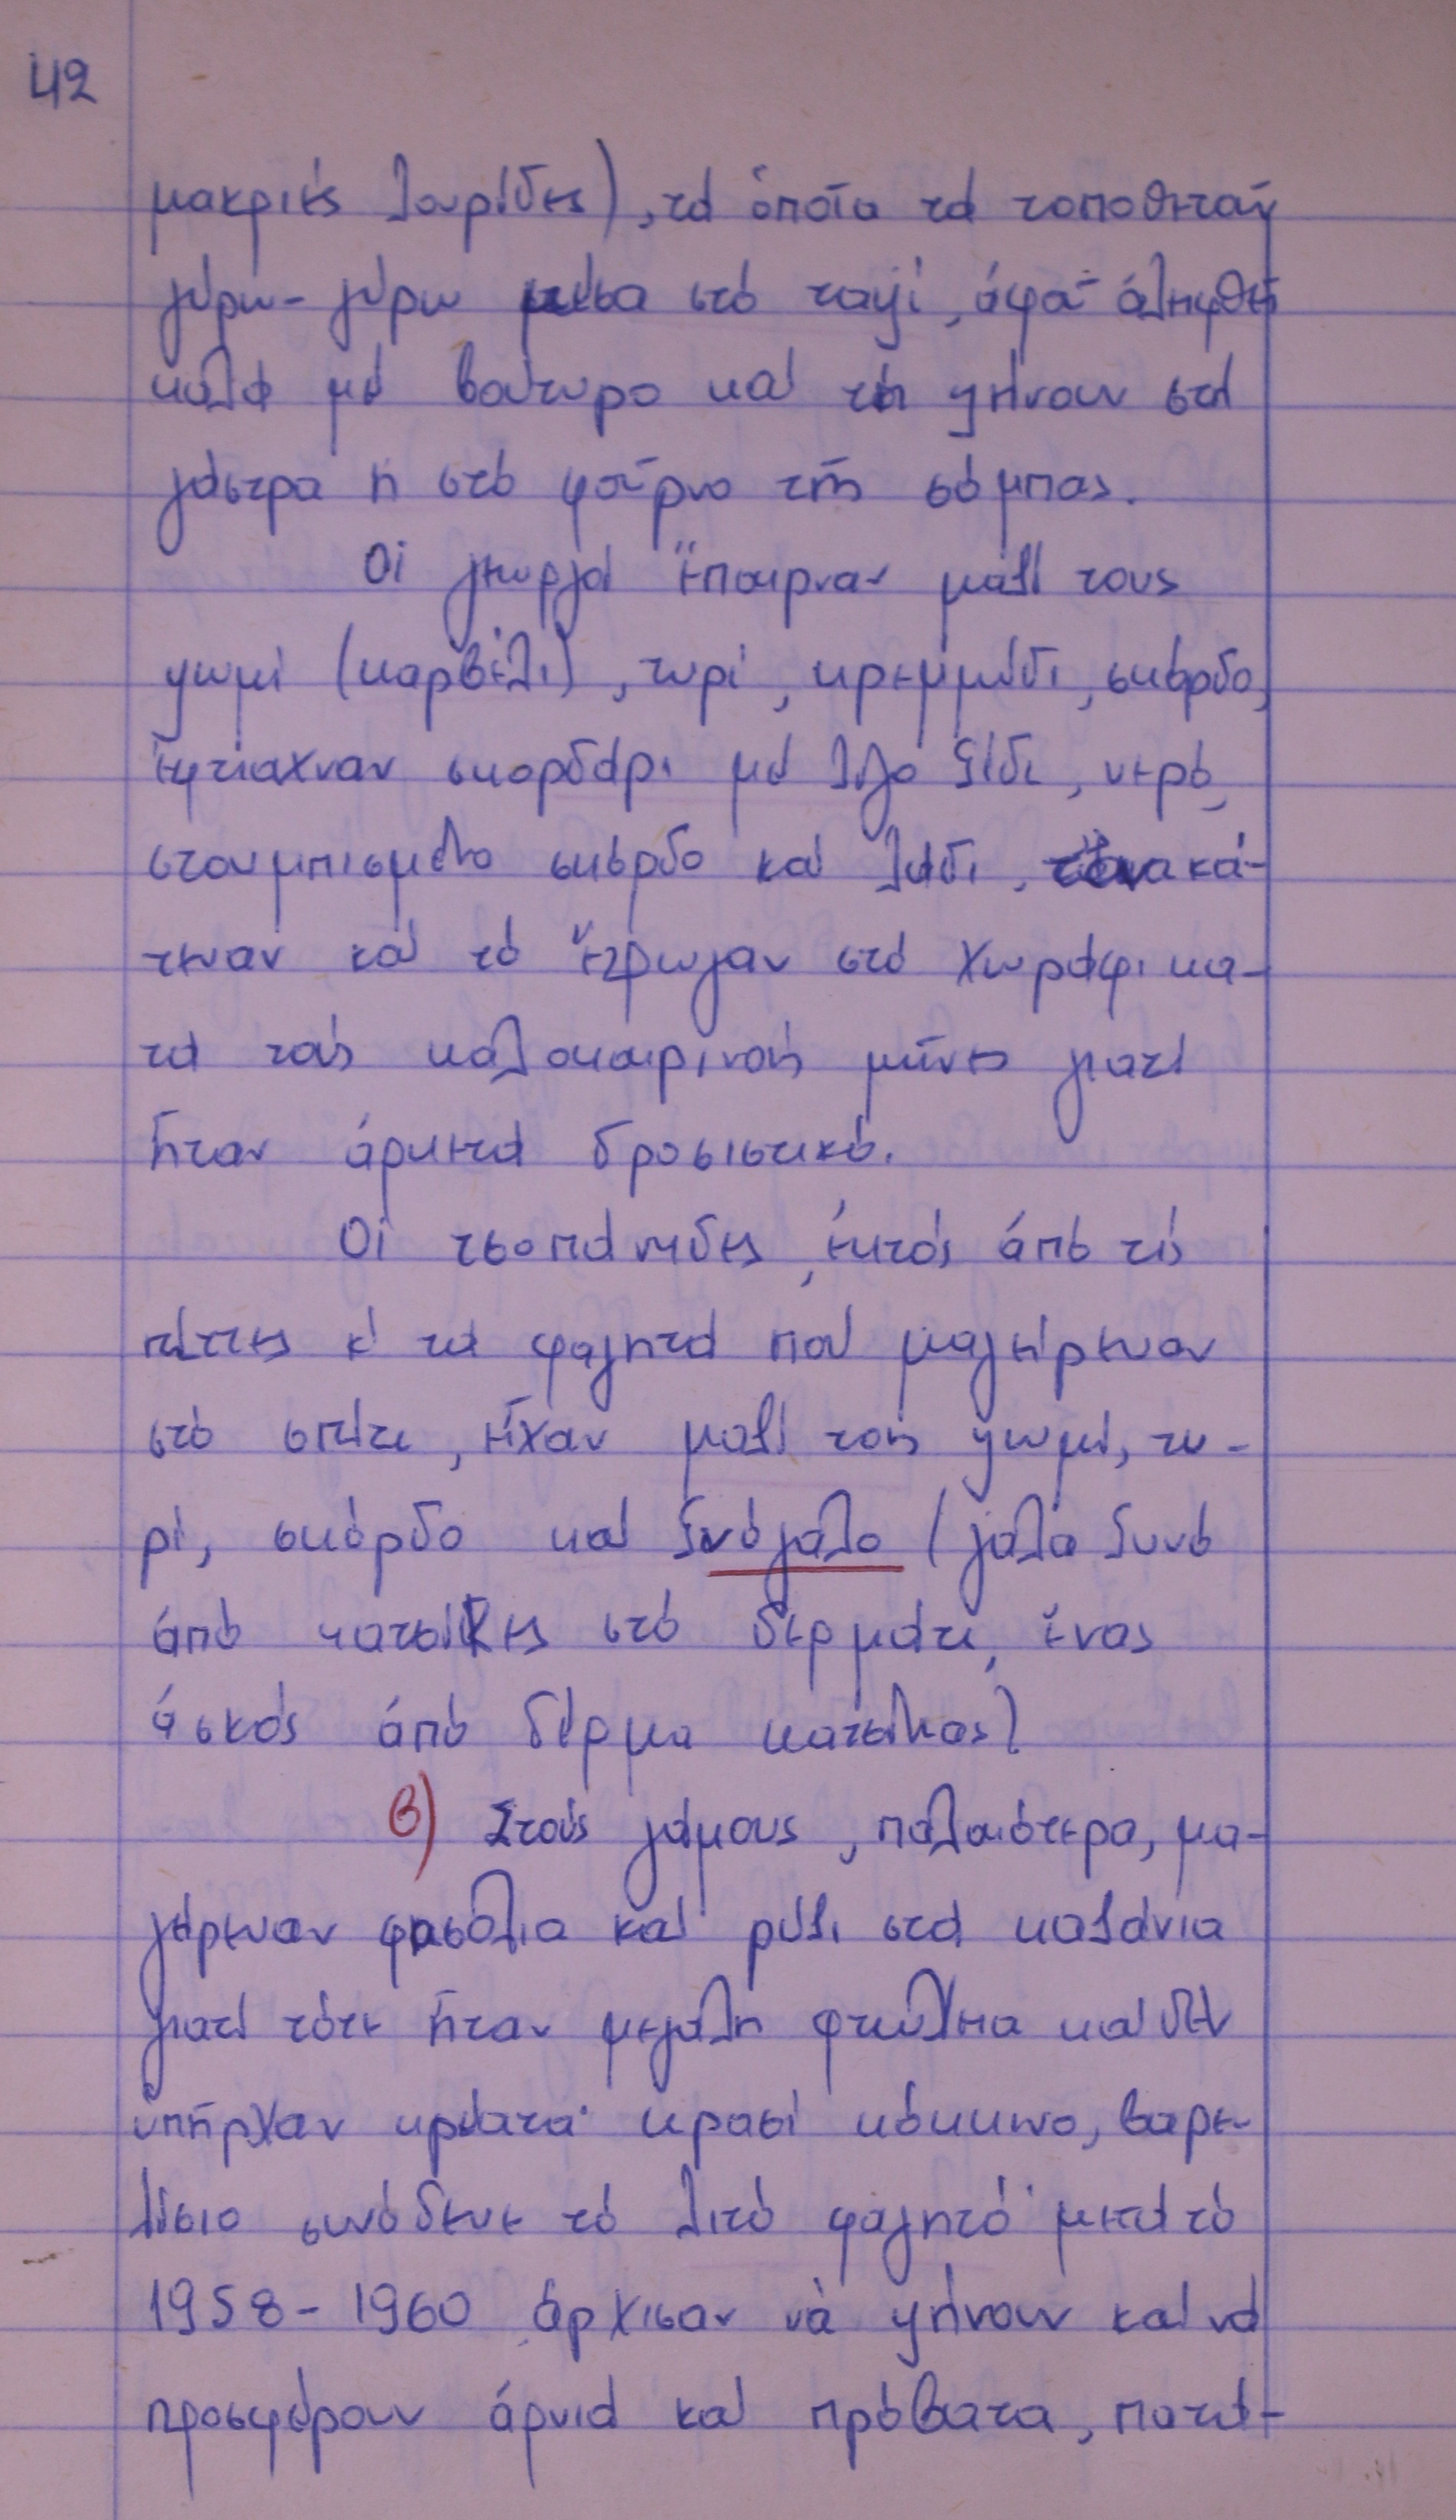 42
μακριές λουρίδες), τά ὁποῖα τά τοποθετοῦν
γύρω-γύρω μέσα στό ταψί, ἀφοῦ ἀλειφθεῖ
καλά μέ βούτυρο καί τή ψήνουν στή
γάστρα ἤ στό φοῦρνο τῆς σόμπας.
Οἱ γεωργοί ἔπαιρναν μαζί τους
ψωμί (καρβέλι), τυρί, κρεμμύδι, σκόρδο,
ἔφτιαχναν σκορδάρι μέ λίγο ξίδι, νερό,
στουμπισμένο σκόρδο καί λάδι, τό ἀνακά-
τευαν καί τό ἔτρωγαν στό χωράφι κα-
τά τούς καλοκαιρινούς μῆνες γιατί
ἦταν ἀρκετά δροσιστικό.
Οἱ τσοπάνηδες, ἐκτός ἀπό τίς
πίττες κ' τά φαγητά πού μαγείρευαν
στό σπίτι, εἶχαν μαζί τούς ψωμί, τυ-
ρί, σκόρδο καί ξινόγαλο (γάλα ξυνό
ἀπό κατσίκες στό δερμάτι, ἕνας
ἀσκός ἀπό δέρμα κατσίκας)
β) Στούς γάμους, παλαιότερα, μα-
γέρευαν φασόλια καί ρύζι στά καζάνια
γιατί τότε ἦταν μεγάλη φτώχεια καί δέν
ὑπῆρχαν κρέατα· κρασί κόκκινο, βαρε-
λίσιο συνόδευε τό λιτό φαγητό· μετά τό
1958-1960 ἄρχισαν νά ψήνουν καί νά
προσφέρουν ἀρνιά καί πρόβατα, πατά-